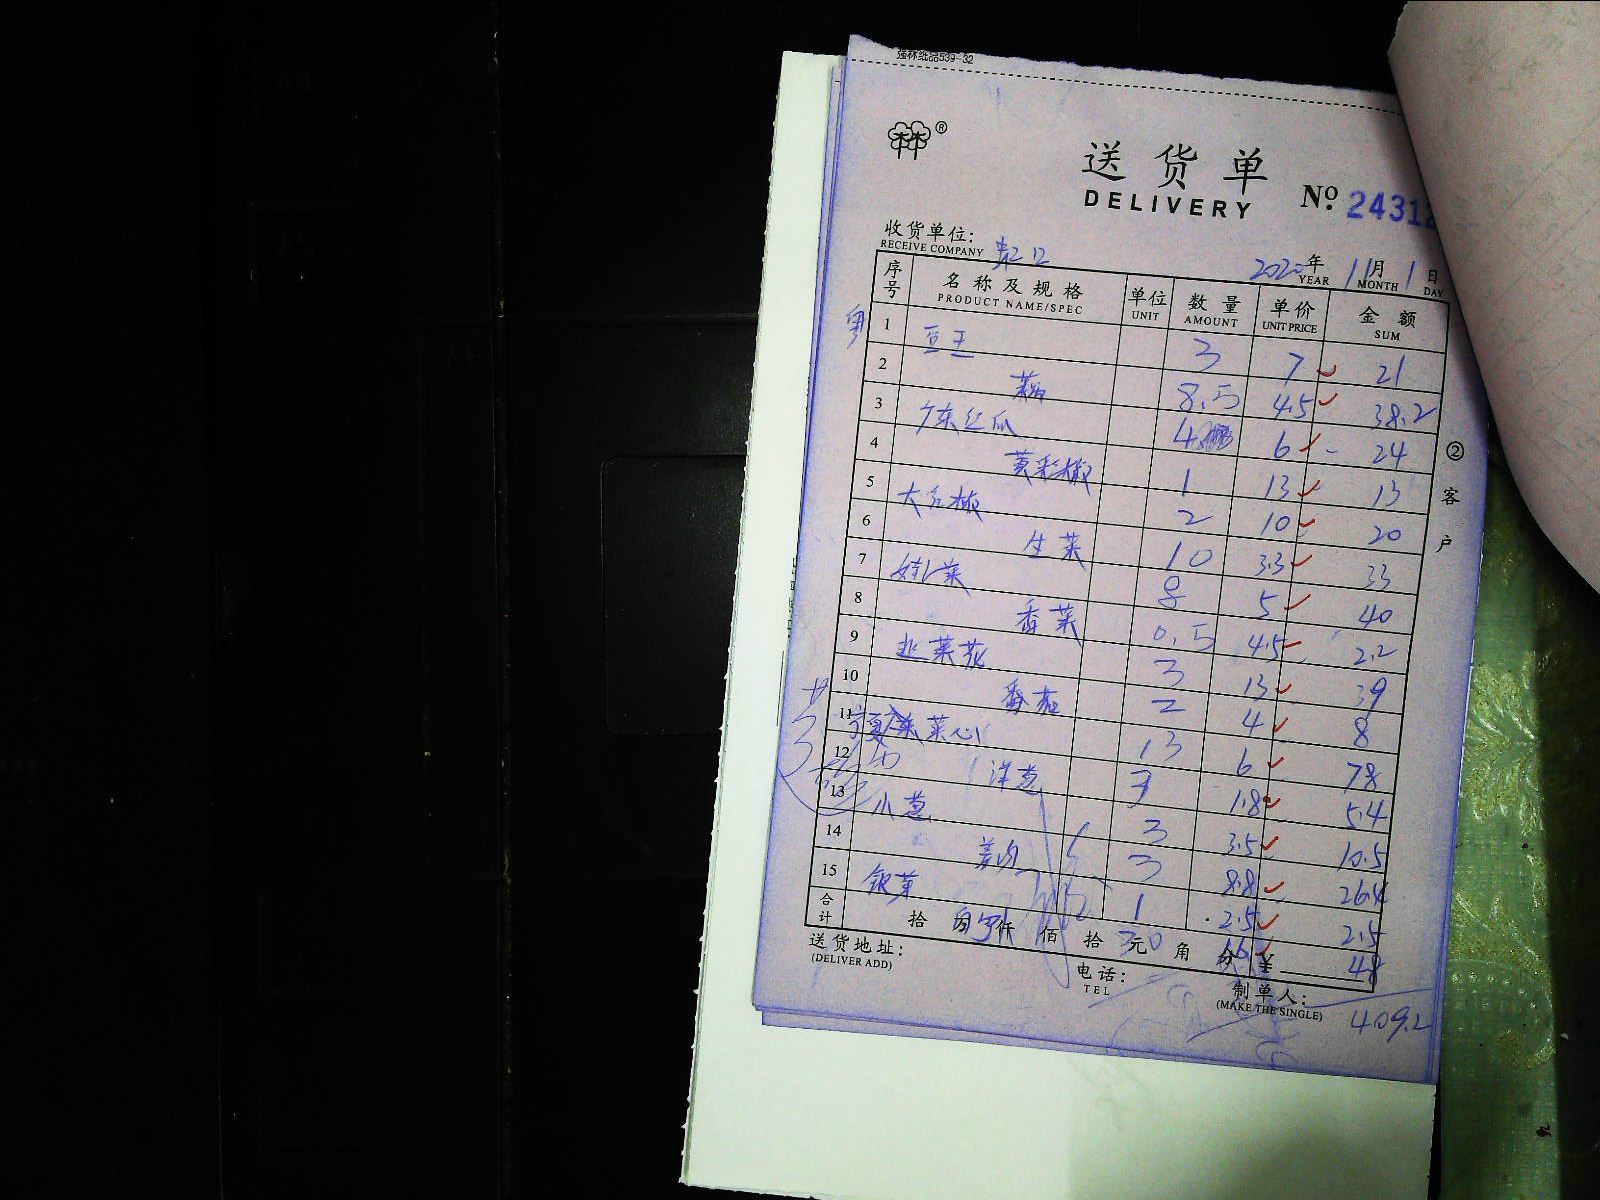 强林纸品539-32
林®
送货单
DELIVERY
No. 2431
收货单位:
RECEIVE COMPANY
2020年 11月 1日
YEAR MONTH DAY
序号 名称及规格 单位 数量 单价 金额
PRODUCT NAME/SPEC UNIT AMOUNT UNIT PRICE SUM
1 豆王 3 7 21
2 8.5 4.5 38.2
3 广东丝瓜 4 6 24
4 黄彩椒 1 13 13
5 大红椒 2 10 20
6 生菜 10 3.3 33
7 娃菜 8 5 40
8 香菜 0.5 4.5 2.2
9 韭菜花 3 13 39
10 番茄 2 4 8
11 宁夏菜心 13 6 78
12 洋葱 3 1.8 5.4
13 小葱 3 3.5 10.5
14 姜肉 3 8.8 26.4
15 银芽 1 2.5 2.5
合计 拾 仟 佰 拾 元 角 分 16 ¥ 48
送货地址:
(DELIVER ADD)
电话:
TEL
制单人:
(MAKE THE SINGLE)
409.2
②客户